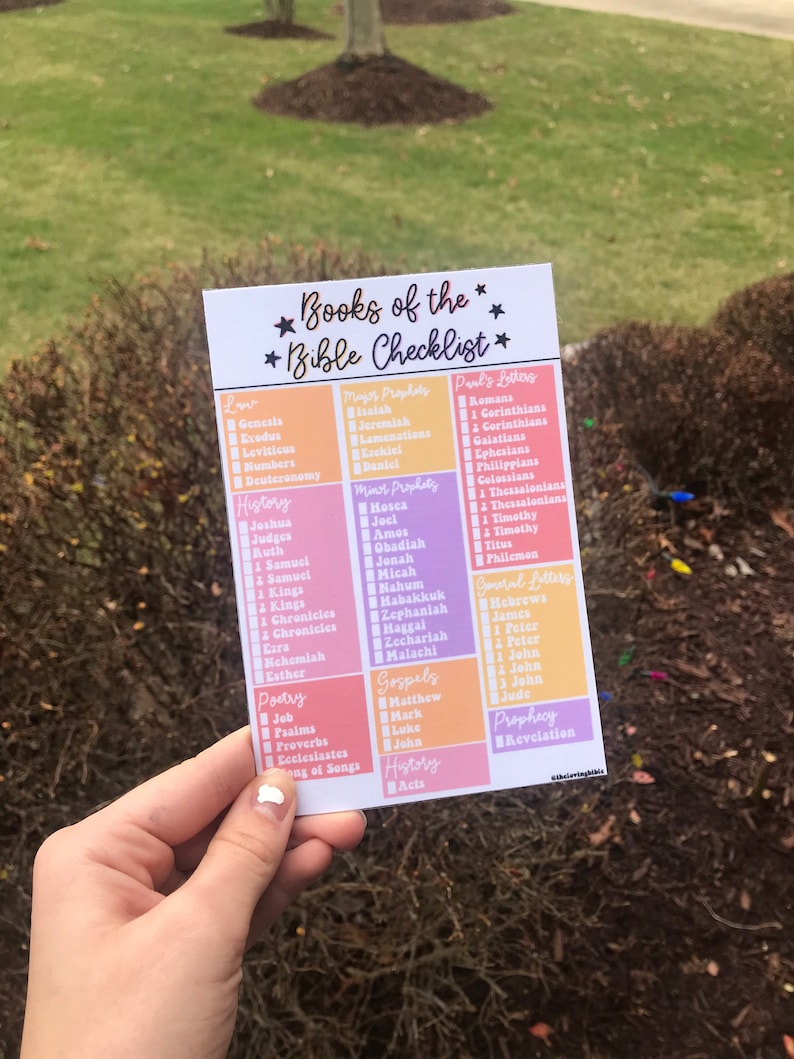 Books of the
Bible Checklist
Law
Genesis
Exodus
Leviticus
Numbers
Deuteronomy
History
Joshua
Judges
Ruth
1 Samuel
2 Samuel
1 Kings
2 Kings
1 Chronicles
2 Chronicles
Ezra
Nehemiah
Esther
Poetry
Job
Psalms
Proverbs
Ecclesiastes
ong of Songs
Major Prophets
Isaiah
Jeremiah
Lamenations
Ezekiel
Daniel
Minor Prophets
Hosea
Joel
Amos
Obadiah
Jonah
Micah
Nahum
Habakkuk
Zephaniah
Haggai
Zechariah
Malachi
Gospels
Matthew
Mark
Luke
John
History
Acts
Paul's Letters
Romans
1 Corinthians
2 Corinthians
Galatians
Ephesians
Philippians
Colossians
1 Thessalonians
2 Thessalonians
1 Timothy
2 Timothy
Titus
Philemon
General Letters
Hebrews
James
1 Peter
2 Peter
1 John
2 John
3 John
Jude
Prophecy
Revelation
@thelovingbible